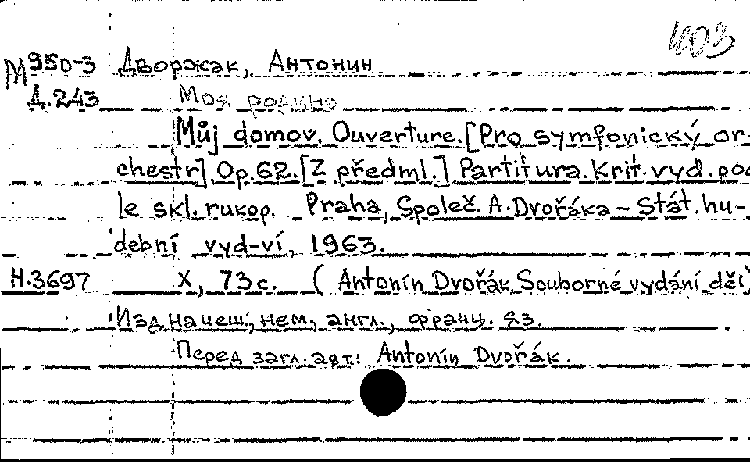 403
М950-3 Дворжак, Антонин
Д.243 Моя родино
Můj domov. Ouverture. [Pro symfonický or-
chestr] Op.62. [Z předml.] Partitura. Krit. vyd. pod
le skl. rukop. Praha, Společ. A. Dvořáka – Stát. hu-
dební vyd-ví, 1963.
Н.3697 X, 73 с. (Antonín Dvořák Souborné vydání děl)
Изд. на чеш., нем., англ., франц. яз.
Перед загл. авт: Antonín Dvořák.